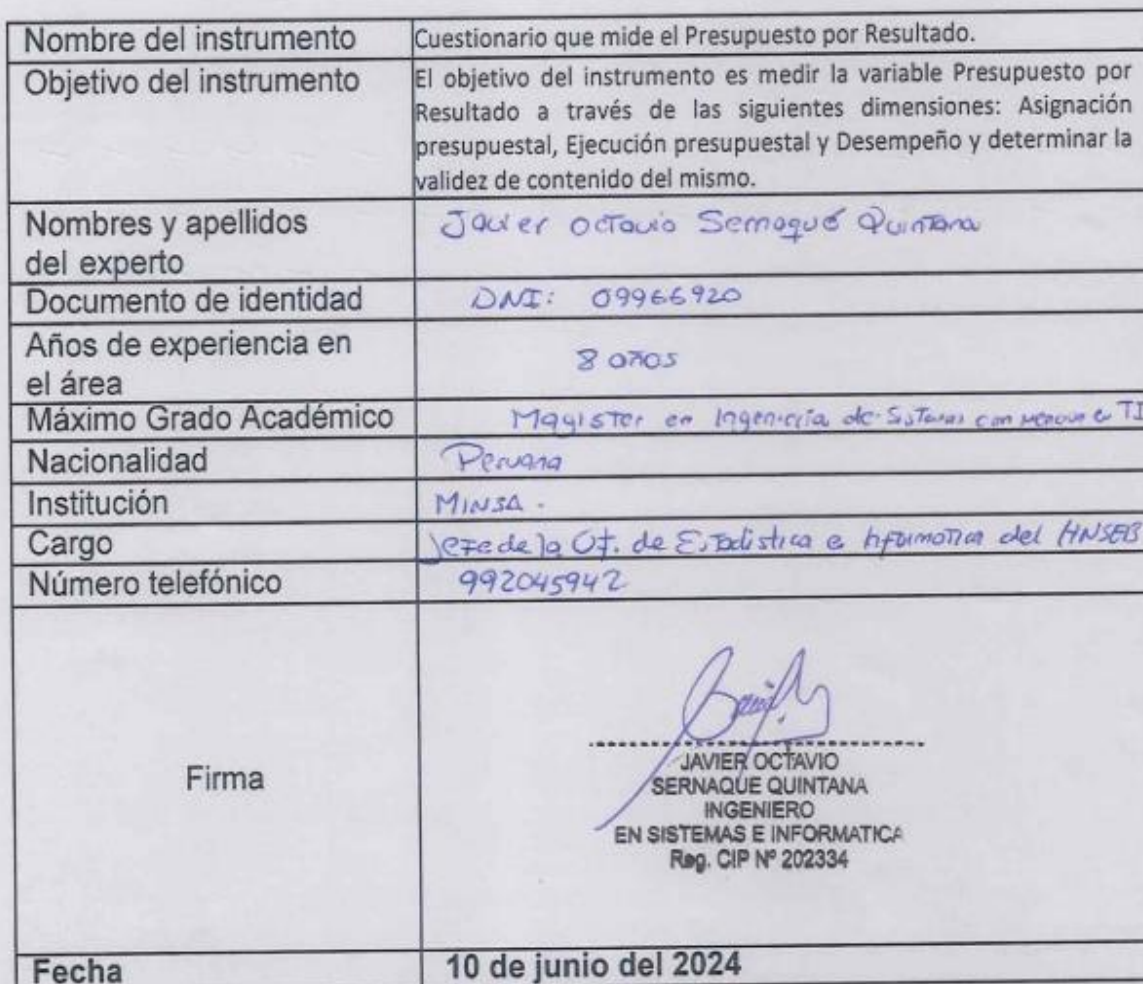 Nombre del instrumento Cuestionario que mide el Presupuesto por Resultado.
Objetivo del instrumento El objetivo del instrumento es medir la variable Presupuesto por
Resultado a través de las siguientes dimensiones: Asignación
presupuestal, Ejecución presupuestal y Desempeño y determinar la
validez de contenido del mismo.
Nombres y apellidos Javier Octavio Sernaqué Quintana
del experto
Documento de identidad DNI: 09966920
Años de experiencia en 8 años
el área
Máximo Grado Académico Magister en Ingeniería de Sistemas con mencion en TI
Nacionalidad Peruana
Institución MINSA.
Cargo Jefe de la Of. de Estadistica e Informatica del HNSEB
Número telefónico 992045942
Firma
JAVIER OCTAVIO
SERNAQUE QUINTANA
INGENIERO
EN SISTEMAS E INFORMATICA
Reg. CIP Nº 202334
Fecha 10 de junio del 2024